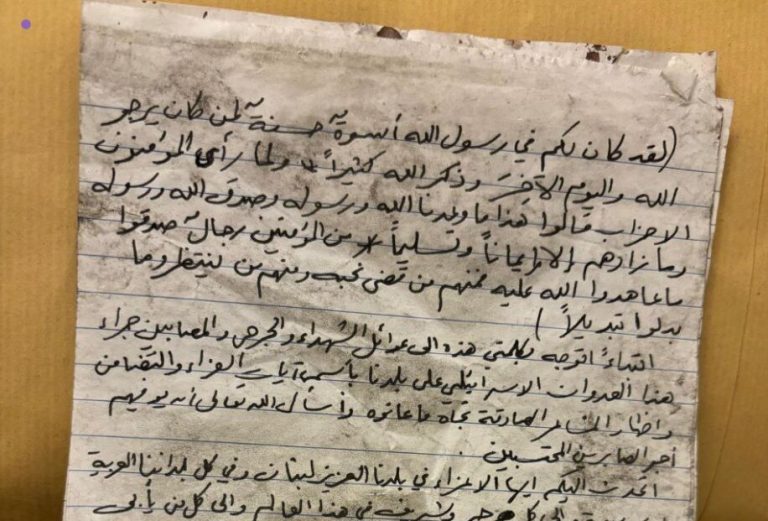 (لقد كان لكم في رسول الله أسوةٌ حسنةٌ لمن كان يرجو
الله واليوم الآخِرَ وذكر الله كثيراً * ولما رأى المؤمنون
الاحزاب قالوا هذا ما وعدنا الله ورسوله وصدق الله ورسوله
وما زادهم إلا إيماناً وتسليماً * من المؤمنين رجالٌ صدقوا
ما عاهدوا الله عليه فمنهم من قضى نحبه ومنهم من ينتظر وما
بدلوا تبديلاً)
ابتداءً اتوجه بكلمتي هذه الى عوائل الشهداء والجرحى والمصابين جراء
هذا العدوان الاسرائيلي على بلدنا بأسمى آيات العزاء والتضامن
واظهار المشاعر الصادقة تجاه ما عانوه وأسأل الله تعالى أن يوفيهم
أجر الصابرين المحتسبين.
اتحدث اليكم ايها الاعزاء في بلدنا العزيز لبنان وفي كل بلداننا العربية
والى كل حر وشريف في هذا العالم والى كل من يأبى